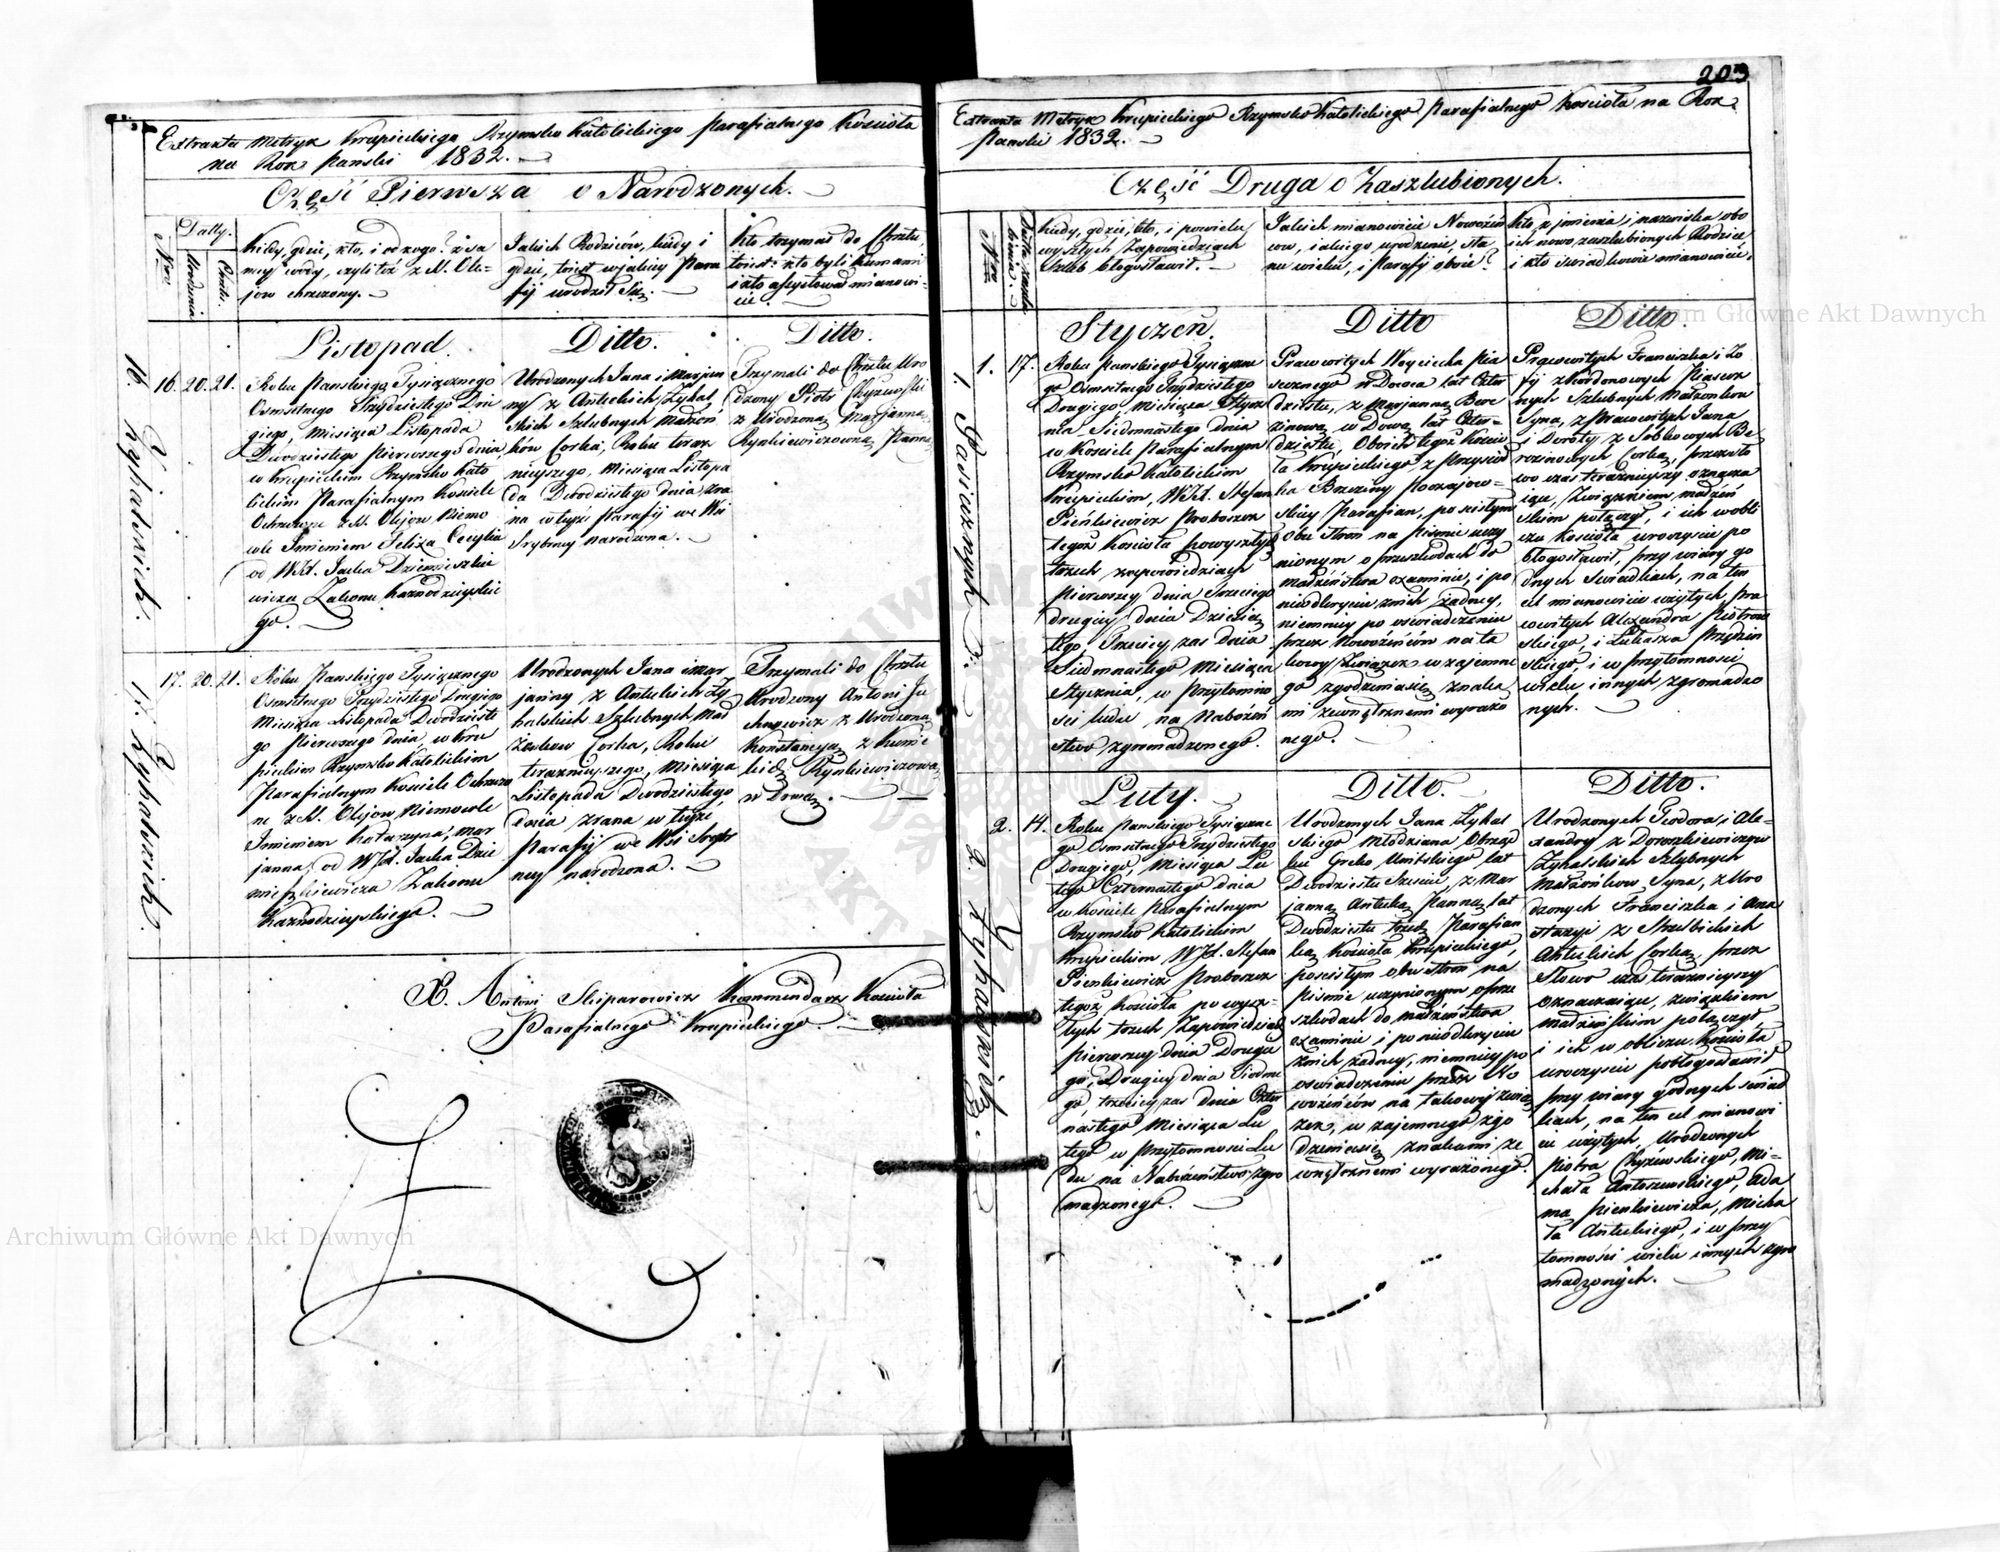 Extraktu Metryk Krupieckiego Rzymsko Katolickiego Parafialnego Kościoła
na Rok Pański 1832.
Część Pierwsza o Narodzonych.
Nro
Datty.
Urodzenia
Chrztu.
Kiedy, gdzie, kto, i od kogo? z sa
mej wody, czyli też z S. Ole-
jów chrzczony.
Jakich Rodziców, kiedy i
gdzie, toiest w jakiey Para
fij urodził się.
Kto trzymał do Chrztu,
toiest: kto byli kumami
i kto assystował mianowi-
cie.
Listopad.
Ditto.
Ditto.
16. 20. 21.
Roku Pańskiego Tysiącznego
Osmsetnego Trzydziestego Dru
giego, Miesiąca Listopada
Dwódziestego pierwszego dnia,
w Krupieckim Rzymsko Kato
lickim Parafialnym Kościele
Ochrzczone z SS. Olejow Niemo
wle Imieniem Felixa Cecylia
od WJX. Jacka Dziemieszkie
wicza Zakonu Kaznodzieyskie
go.
Urodzonych Jana i Marjan
ny z Antuckich Zyhal
skich Szlubnych Małżon
ków Corka, Roku teraz
nieyszego, Miesiąca Listopa
da Dwódziestego dnia zra
na w teyże Parafij we Wsi
Srybney narodzona.
Trzymali do Chrztu Uro
dzony Piotr Chyżewski
z Urodzoną Marjanną
Rynkiewiczowną Panną.
16 Zyhalskich.
17. 20. 21.
Roku Pańskiego Tysiącznego
Osmsetnego Trzydziestego Drugiego
Miesiąca Listopada Dwodzieste
go pierwszego dnia, w Kru
pieckim Rzymsko Katolickim
Parafialnym Kościele Ochrzczo
ne z SS. Olejow Niemowle
Imieniem Katarzyna, Mar
janna, od WJX. Jacka Dzie
mieszkiewicza Zakonu
Kaznodzieyskiego.
Urodzonych Jana i Mar
janny z Antuckich Zy
halskich Szlubnych Mał
żonkow Corka, Roku
teraznieyszego, Miesiąca
Listopada Dwodziestego
dnia zrana w teyże
Parafij we Wsi Sryb
ney narodzona.
Trzymali do Chrztu
Urodzony Antoni Ju
chnowicz z Urodzoną
Konstancyą z Kunic
kich Rynkiewiczową
w Drwą.
17. Zyhalskich.
X. Antoni Śliparowicz Kommendarz Kościoła
Parafialnego Krupieckiego.
203
Extraktu Metryk Krupieckiego Rzymsko Katolickiego Parafialnego Kościoła na Rok
Pański 1832.
Część Druga o Zaszlubionych.
Nro
Datta Zaszlu
bienia.
Kiedy, gdzie, kto, i po wielu
wyszłych Zapowiedziach
Szlub błogosławił.
Jakich mianowicie Nowożeń
cow, i akiego urodzenia, sta
nu wieku, i Parafij oboie?
Kto, z imienia i nazwiska obo
ich nowo zaszlubionych Rodzice
i kto świadkowie mianowicie.
Styczeń.
Ditto
Ditto.
1. 17.
Roku Pańskiego Tysiączne
go Osmsetnego Trzydziestego
Drugiego, Miesiąca Stycz
nia Siedmnastego dnia
w Kościele Parafialnym
Rzymsko Katolickim
Krupieckim, WJX. Stefan
Pieńkiewicz Proboszcz
tegoż Kościoła po wyszłych
trzech zapowiedziach
pierwszey dnia Trzeciego
drugiey dnia Dziesią
tego, Trzeciey zas dnia
Siedmnastego Miesiąca
Stycznia, w przytomno
sci ludu na Nabożeń
stwo zgromadzonego.
Pracowitych Woyciecha Pia
secznego Wdowca lat Czter
dziestu, z Marjanną Bere
zinową Wdową lat Czter-
dziestu, Oboich tegoż Kościo
ła Krupieckiego z Przysioł
ka Brzeziny Poczajow-
skiey Parafian, po scisłym
Obu stron na piśmie uczy
nionym o przeszkodach do
małżeństwa examinie, i po
nieodkryciu znich żadney,
niemniey po oświadczeniu
przez Nowożeńcow na ta
kowy Związek w zajemne
go zgodzenia się znaka
mi zewnętrznemi wyrażo
nego.
Pracowitych Franciszka i Zo
fij z Kordonowych Piasecz
nych Szlubnych Małżonkow
Syna, z Pracowitych Jana
i Doroty z Sobkowych Be
rezinowych Corką, przez sło
wo czas teraznieyszy oznacza
iące, Związkiem małżeń
skim połączył, i ich w obli
czu Kościoła uroczyscie po
błogosławił, przy wiary go
dnych Swiadkach, na ten
cel mianowicie wziętych, pra
cowitych Alexandra Piotrow
skiego, i Łukasza Przybin
skiego, i w przytomnosci
wielu innych zgromadzo
nych.
1. Piasecznych 3.
Luty.
Ditto.
Ditto.
2. 14.
Roku Pańskiego Tysiączne
go Osmsetnego Trzydziestego
Drugiego, Miesiąca Lu
tego Czternastego dnia
w Kościele Parafialnym
Rzymsko Katolickim
Krupieckim WJX. Stefan
Pienkiewicz Proboszcz
tegoż Kościoła po wysz-
łych trzech Zapowiedziach
pierwszey dnia Drugie
go, Drugiey dnia Siodme
go, trzeciey zas dnia Czter
nastego Miesiąca Lu
tego w Przytomnosci Lu
du na Nabożeństwo zgro
madzonego.
Urodzonych Jana Zyhal
skiego Młodziana Obrząd
ku Greko Unitskiego lat
Dwodziestu Szesciu, z Mar
janną Antucką Panną lat
Dwodziestu trzech Parafian
ką Kościoła Krupieckiego,
po scisłym obu stron na
piśmie uczynionym o prze
szkodach do małżeństwa
examinie i po nieodkryciu
znich żadney, niemniey po
oświadczeniu przez No
wożeńców na takowy zwią
zek, w zajemnego zgo
dzenia się znakami ze
wnętrznemi wyrażonego.
Urodzonych Fiodora, i Ale-
xandry z Doroszkiewiczow
Zyhalskich Szlubnych
Małżonkow Syna, z Uro
dzonych Franciszka i Ana
stazyi z Strulbickich
Antuckich Corką, przez
Słowo czas teraznieyszy
oznaczaiące, związkiem
małżeńskim połączył
i ich w obliczu Kościoła
uroczyscie pobłogosławił
przy wiary godnych swiad
kach, na ten cel mianowi
cie wziętych, Urodzonych
Piotra Chyżewskiego, Mi-
chała Antoszewskiego, Ada
ma Pienkiewicza, Micha
ła Antuckiego, i w przy
tomności wielu innych zgro
madzonych.
2. Zyhalskich.
Archiwum Główne Akt Dawnych
Archiwum Główne Akt Dawnych